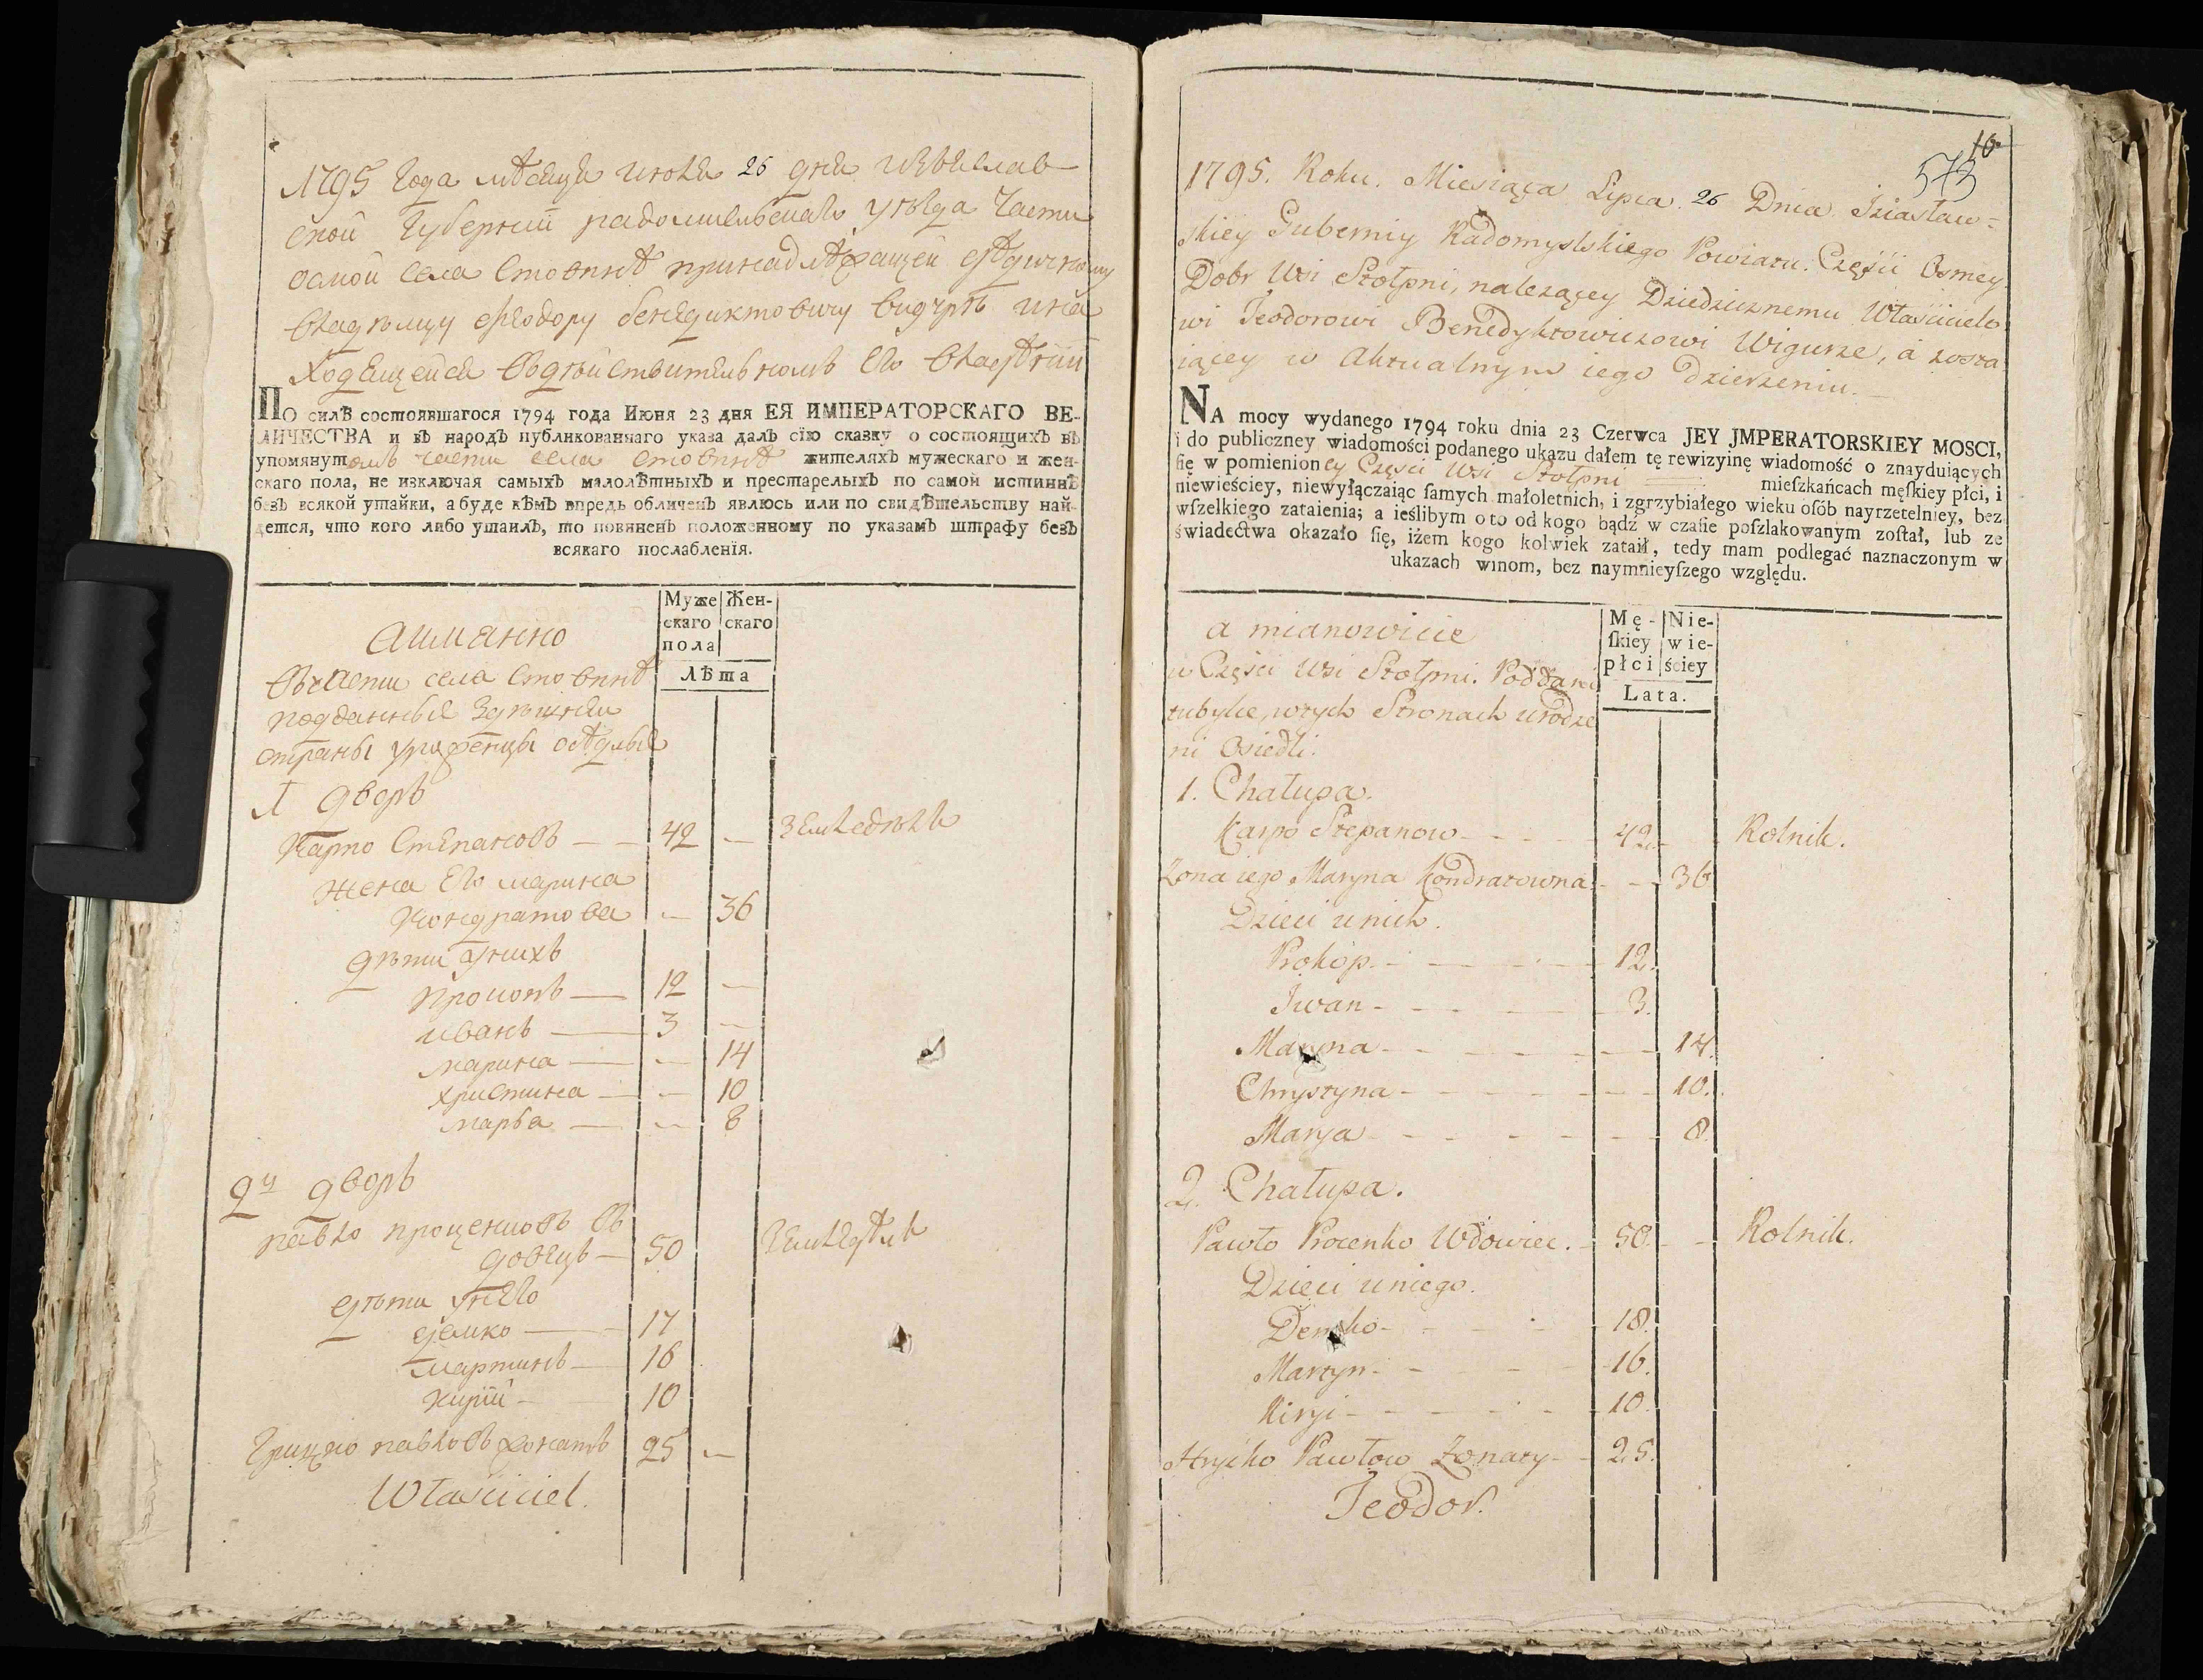 1795 года мѣсяца июля 26 дня изяслав-
ской губернии радомисльскаго уѣзда части
осмой села стовпнѣ принадлѣжащей едѣичному
владѣлцу феодору бенедиктовичу вигурѣ и на
ходящейся въ дѣйствительномъ его владѣнии
ПО силѣ состоявшагося 1794 года Июня 23 дня ЕЯ ИМПЕРАТОРСКАГО ВЕ-
ЛИЧЕСТВА и въ народъ публикованнаго указа далъ сію сказку о состоящихъ въ
упомянутомъ части села стовпнѣ жителяхъ мужескаго и жен-
скаго пола, не изключая самыхъ малолѣтныхъ и престарелыхъ по самой истиннѣ
безъ всякой утайки, а буде кѣмъ впредь обличенъ явлюсь или по свидѣтельству най-
дется, что кого либо утаилъ, то повиненъ положенному по указамъ штрафу безъ
всякаго послабленія.
Муже Жен-
скаго скаго
пола
лѣта
а имянно
въ части села стовпнѣ
подданныя здѣшнеи
страны уроженцы осѣдлыя
1 дворъ
Карпо Степановъ — 42 — земледѣлъ
жена его марина
кондратова — 36
дѣти у нихъ
прокопъ — 12 —
иванъ — 3 —
марина — — 14
христина — — 10
марья — — 8
2й дворъ
павло проценковъ въ
довецъ — 50 земледѣлъ
дѣти у него
демко — 17
мартинъ — 16
кирій — 10
грицко павловъ жонатъ 25 —
Właściciel.
16
573
1795. Roku. Miesiąca Lipca. 26 Dnia. Iziasław=
skiey Gubernij Radomyslskiego Powiatu. Części Osmey.
Dobr Wsi Stołpni, należącey Dziedzicznemu Właścicielo
wi Teodorowi Benedyktowiczowi Wigurze, á zosta
iącey w Aktualnym iego Dzierżeniu.
NA mocy wydanego 1794 roku dnia 23 Czerwca JEY JMPERATORSKIEY MOSCI,
i do publiczney wiadomości podanego ukazu dałem tę rewizyinę wiadomość o znayduiących
ſię w pomienioney Części Wsi Stołpni mieſzkańcach męſkiey płci, i
niewieściey, niewyłączaiąc ſamych małoletnich, i zgrzybiałego wieku oſób nayrzetelniey, bez
wſzelkiego zataienia; a ieślibym o to od kogo bądź w czaſie poſzlakowanym zoſtał, lub ze
świadectwa okazało ſię, iżem kogo kolwiek zataił, tedy mam podlegać naznaczonym w
ukazach winom, bez naymnieyſzego względu.
Mę- Nie-
ſkiey wie-
płci ściey
Lata.
a mianowicie
w Części Wsi Stołpni. Poddani
tubylce, w tych Stronach urodze
ni Osiedli.
1. Chałupa.
Karpo Stepanow - - - 42. - - Rolnik.
Zona iego Maryna Kondratowna - - 36
Dzieci u nich.
Prokóp - - - 12.
Iwan - - - 3.
Maryna - - - 14.
Chrystyna - - - 10.
Marya - - - 8.
2. Chałupa.
Pawło Procenko Wdowiec. - 50. - - Rolnik.
Dzieci u niego.
Demko - - - 18.
Martyn - - - 16.
Kiryi - - - 10.
Hryćko Pawłow Żonaty - - 25.
Teodor.